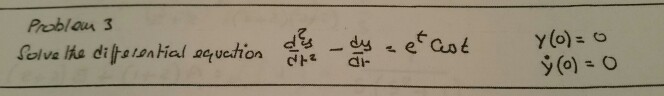 Problem 3
Solve the differential equation d²y/dt² - dy/dt = eᵗ Cost y(0) = 0
ẏ(0) = 0